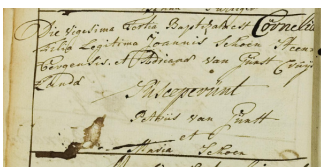 Die vigesima tertia Baptisata est Cornelia
filia Legitima Joannis Schoen Steen
bergensis, et Adriana van Gaatt Cruys
landt
Susceperunt
Petrus van Gaatt
et
Maria Schoen